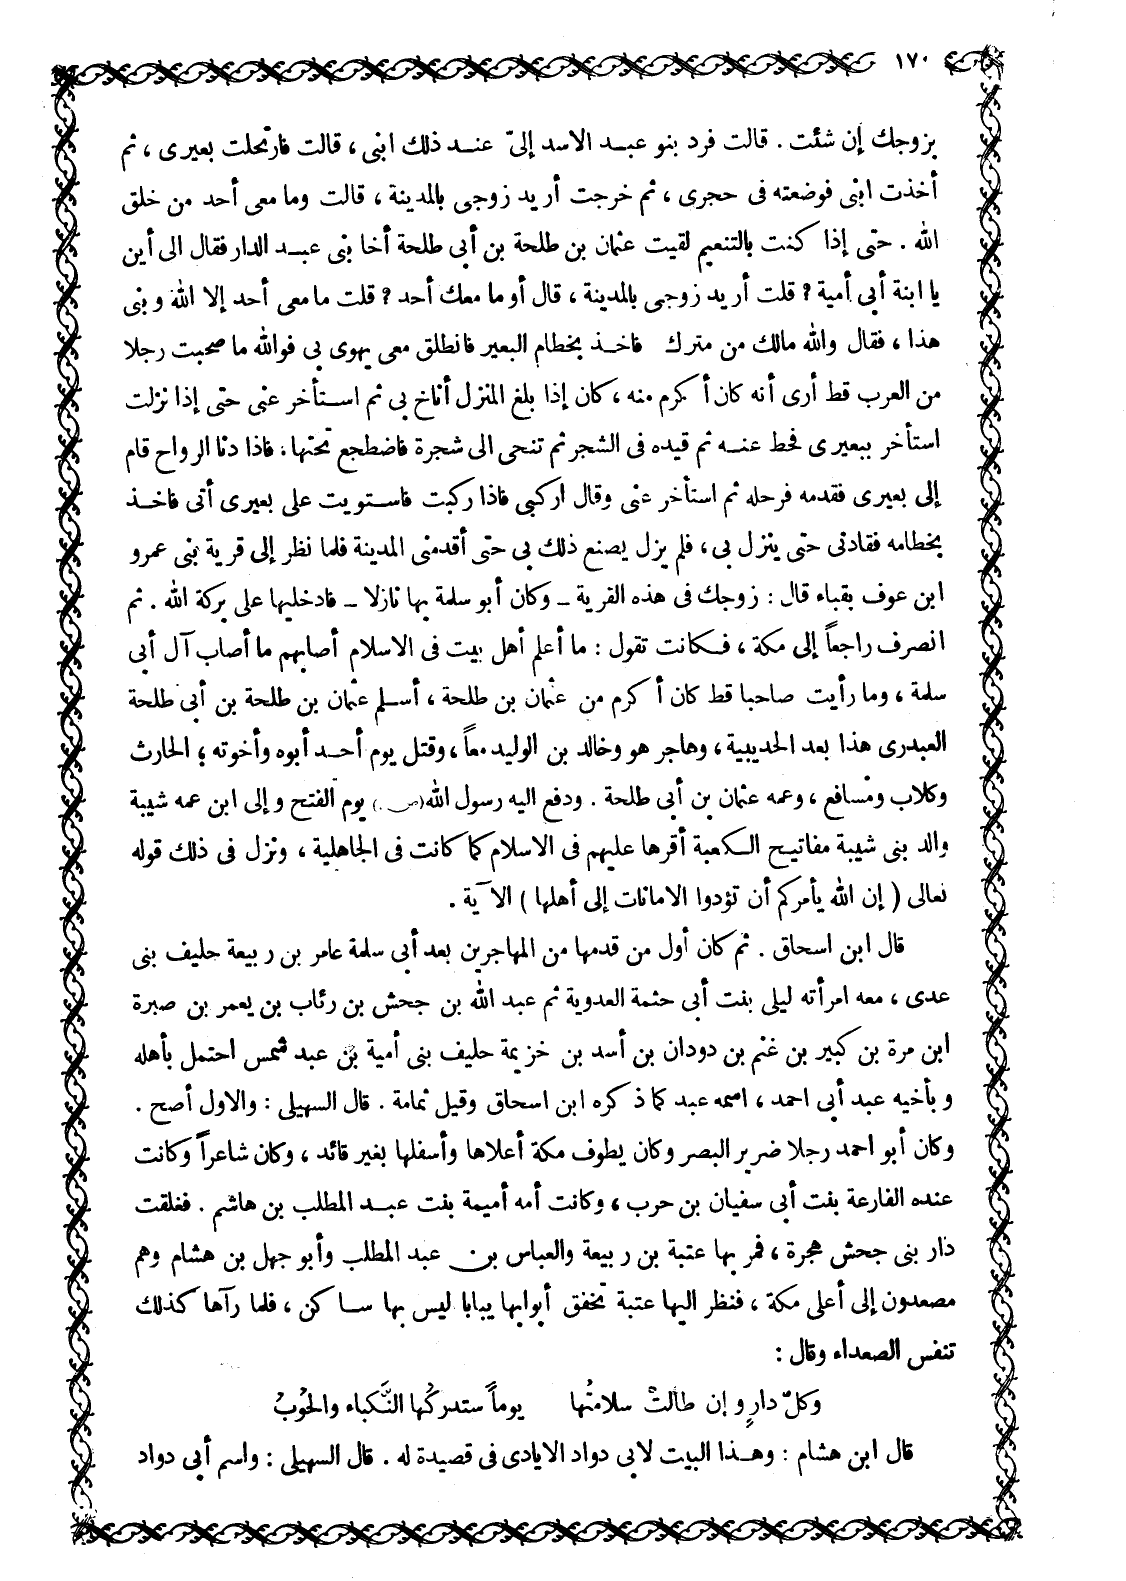 ١٧٠
بزوجك إن شئت . قالت فرد بنو عبد الاسد إلىّ عند ذلك ابنى ، قالت فارتحلت بعيرى ، ثم
أخذت ابنى فوضعته فى حجرى ، ثم خرجت أريد زوجى بالمدينة ، قالت وما معى أحد من خلق
الله . حتى إذا كنت بالتنعيم لقيت عثمان بن طلحة بن أبى طلحة أخا بنى عبد الدار فقال الى أين
يا ابنة أبى أمية ? قلت أريد زوجى بالمدينة ، قال أوما معك أحد ? قلت ما معى أحد إلا الله وبنى
هذا ، فقال والله مالك من مترك فاخذ بخطام البعير فانطلق معى يهوى بى فوالله ما صحبت رجلا
من العرب قط أرى أنه كان أكرم منه ، كان إذا بلغ المنزل أناخ بى ثم استأخر عنى حتى إذا نزلت
استأخر ببعيرى فحط عنه ثم قيده فى الشجر ثم تنحى الى شجرة فاضطجع تحتها ، فاذا دنا الرواح قام
إلى بعيرى فقدمه فرحله ثم استأخر عنى وقال اركبى فاذا ركبت فاستويت على بعيرى أتى فاخذ
بخطامه فقادنى حتى ينزل بى ، فلم يزل يصنع ذلك بى حتى أقدمنى المدينة فلما نظر إلى قرية بنى عمرو
ابن عوف بقباء قال : زوجك فى هذه القرية ــ وكان أبو سلمة بها نازلا ــ فادخليها على بركة الله . ثم
انصرف راجعاً إلى مكة ، فكانت تقول : ما أعلم أهل بيت فى الاسلام أصابهم ما أصاب آل أبى
سلمة ، وما رأيت صاحبا قط كان أكرم من عثمان بن طلحة ، أسلم عثمان بن طلحة بن أبى طلحة
العبدرى هذا بعد الحديبية ، وهاجر هو وخالد بن الوليد معاً ، وقتل يوم أحد أبوه وأخوته ؛ الحارث
وكلاب ومسافع ، وعمه عثمان بن أبى طلحة . ودفع اليه رسول الله (ص) يوم الفتح وإلى ابن عمه شيبة
والد بنى شيبة مفاتيح الكعبة أقرها عليهم فى الاسلام كما كانت فى الجاهلية ، ونزل فى ذلك قوله
تعالى ( إن الله يأمركم أن تؤدوا الامانات إلى أهلها ) الآية .
قال ابن اسحاق . ثم كان أول من قدمها من المهاجرين بعد أبى سلمة عامر بن ربيعة حليف بنى
عدى ، معه امرأته ليلى بنت أبى حثمة العدوية ثم عبد الله بن جحش بن رئاب بن يعمر بن صبرة
ابن مرة بن كبير بن غنم بن دودان بن أسد بن خزيمة حليف بنى أمية بن عبد شمس احتمل بأهله
وبأخيه عبد أبى احمد ، اسمه عبد كما ذكره ابن اسحاق وقيل ثمامة . قال السهيلى : والاول أصح .
وكان أبو احمد رجلا ضرير البصر وكان يطوف مكة أعلاها وأسفلها بغير قائد ، وكان شاعراً وكانت
عنده الفارعة بنت أبى سفيان بن حرب ، وكانت أمه أميمة بنت عبد المطلب بن هاشم . فغلقت
دار بنى جحش هجرة ، فمر بها عتبة بن ربيعة والعباس بن عبد المطلب وأبو جهل بن هشام وهم
مصعدون إلى أعلى مكة ، فنظر اليها عتبة تخفق أبوابها يبابا ليس بها ساكن ، فلما رآها كذلك
تنفس الصعداء وقال :
وكلّ دارٍ وإن طالتْ سلامتُها يوماً ستدركُها النَّكباء والحُوبُ
قال ابن هشام : وهذا البيت لابى دواد الايادى فى قصيدة له . قال السهيلى : واسم أبى دواد